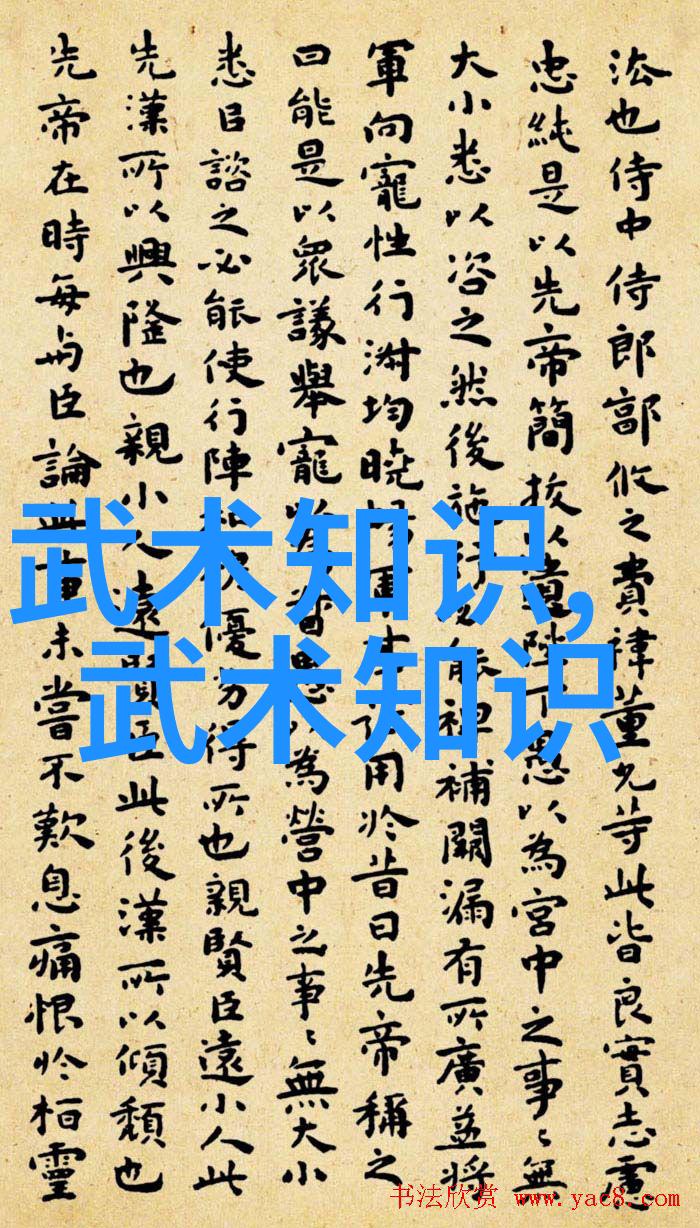 法也侍中侍郎郭攸之費禕董允等此皆良實志慮
忠純是以先帝簡拔以遺陛下愚以為宮中之事〻無
大小悉以咨之然後施行必能裨補闕漏有所廣益將
軍向寵性行淑均曉暢軍事用於昔日先帝稱之
曰能是以衆議舉寵以為督愚以為營中之事〻無大小
悉以諮之必能使行陣和優劣得所也親賢臣遠小人此
先漢所以興隆也親小人遠賢臣此後漢所以傾頹也
先帝在時每与臣論此事未嘗不歎息痛恨於桓靈
武术知识,
武术知识
书法欣赏 www.yac8.com